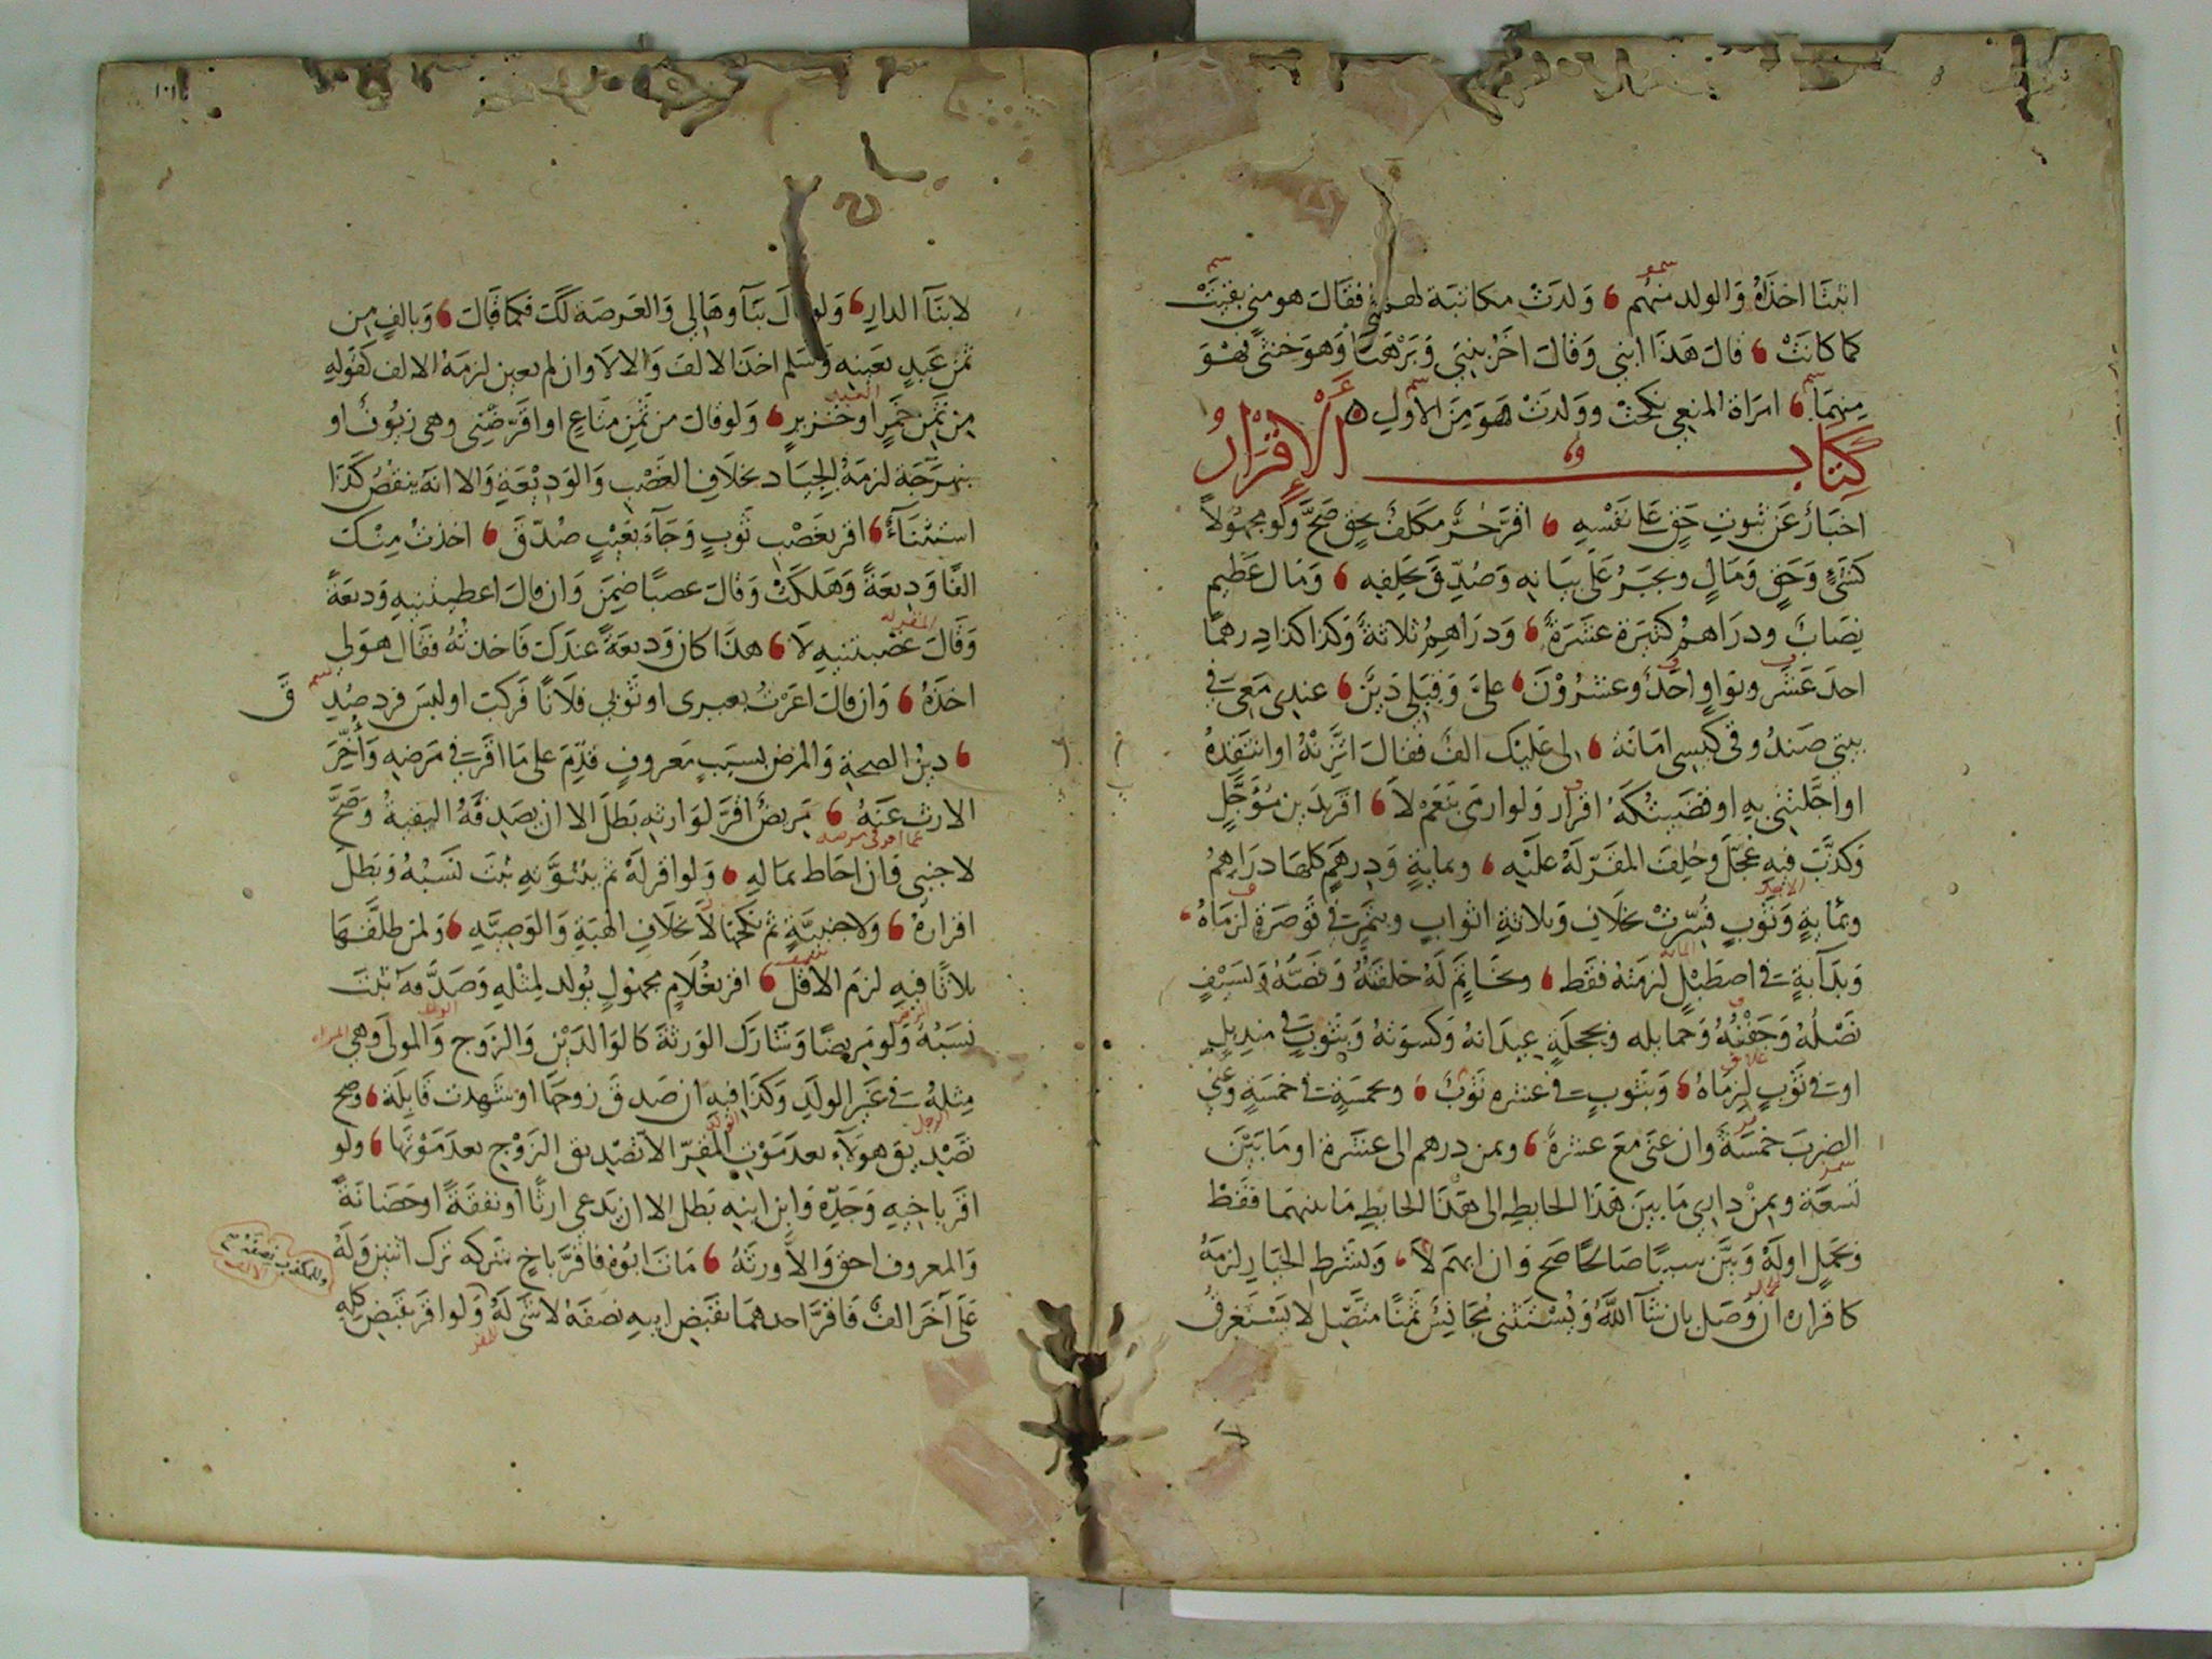 اثبتا اخذاه والولد منهم ، ولدت مكاتبة لهما فقال هو مني بقيت
كما كانت ، قال هذا ابني وقال اخر بنتي وبرهنا وهو خنثى فهو
منهما ، امراة المنعي نكحت وولدت هو من الاول
كتاب الإقرار
اخبار عن ثبوت حق على نفسه ، اقر حر مكلف بحق صح ولو مجهولا
كشئ وحق ومال ويجبر على بيانه وصدق بحلفه ، ومال عظيم
نصاب ودراهم كثيرة عشرة ، ودراهم ثلاثة وكذا كذا درهما
احد عشر وبواو احد وعشرون ، علي وقبلي دين ، عندي معي في
بيتي صندوقي كيسي امانة ، لي عليك الف فقال اتزنه او انتقده
او اجلتني به او قضيتكه اقرار ولو ارمى بنعم لا ، اقر بدين مؤجل
وكذب فيه عجل وحلف المقر له عليه ، وبماية ودرهم كلها دراهم
وبماية وثوب فسرت بخلاف وثلاثة اثواب وبتمر في قوصرة لزماه ،
وبدابة في اصطبل لزمته فقط ، وبخاتم له حلقته وفصه وبسيف
نصله وجفنه وحمايله وبحجلة عيدانه وكسوته وبثوب في منديل
او في ثوب لزماه ، وبثوب في عشره ثوب ، وبخمسة في خمسة وعني
الضرب خمسة وان عنى مع عشرة ، وبمن درهم الى عشرة او ما بين
تسعة وبمن داري ما بين هذا الحايط الى هذا الحايط ما بينهما فقط
وبحمل اوله وبين سببا صالحا صح وان ابهم لا ، وبشرط الخيار لزمه
كاقراره ان وصل بان شآ الله ويستثنى مجانس ثمنا متصل لا يستغرق
لا بنآ الدار ، ولو قال بنآوها لي والعرصة لك فكما قال ، وبالف من
ثمن عبد بعينه وسلم اخذ الالف والا لا وان لم يعين لزمه الالف كقوله
من ثمن خمر او خنزير ، ولو قال من ثمن متاع او اقرضني وهي زيوف او
نبهرجة لزمه الجياد بخلاف الغصب والوديعة والا انه ينقص كذا
استثنآء ، اقر بغصب ثوب وجآء بعيب صدق ، اخذت منك
الفا وديعة وهلكت وقال غصبا ضمن وان قال اعطيتنيه وديعة
وقال غصبتنيه لا ، هذا كان وديعة عندك فاخذته فقال هو لي
اخذه ، وان قال اعرت بعيري او ثوبي فلانا فركب او لبس فرد صدق
، دين الصحة والمرض بسبب معروف قدم على ما اقر به في مرضه وأخر
الارث عنه ، مريض اقر لوارثه بطل الا ان يصدقه البقية وصح
لاجنبي وان احاط بماله ، ولو اقر له ثم ببنوته ثبت نسبه وبطل
اقراره ، ولاجنبية ثم نكحها لا بخلاف الهبة والوصية ، ولمن طلقها
ثلاثا فيه لزم الاقل ، اقر بغلام مجهول يولد لمثله وصدقه ثبت
نسبه ولو مريضا وشارك الورثة كالوالدين والزوج والمولى وهي
مثله في غير الولد وكذا فيه ان صدق زوجها او شهدت قابلة ، وصح
تصديق هولآء بعد موت المقر الا تصديق الزوج بعد موتها ، ولو
اقر باخيه وجده وابن ابنه بطل الا ان يدعي ارثا او نفقة او حضانة
والمعروف احق والا ورثه ، مات ابوه فاقر باخ شركه ترك اثنين وله
على آخر الف فاقر احدهما بقبض ابيه نصفه لا شئ له ولو اقر بقبض كله
وللمكذب نصفه